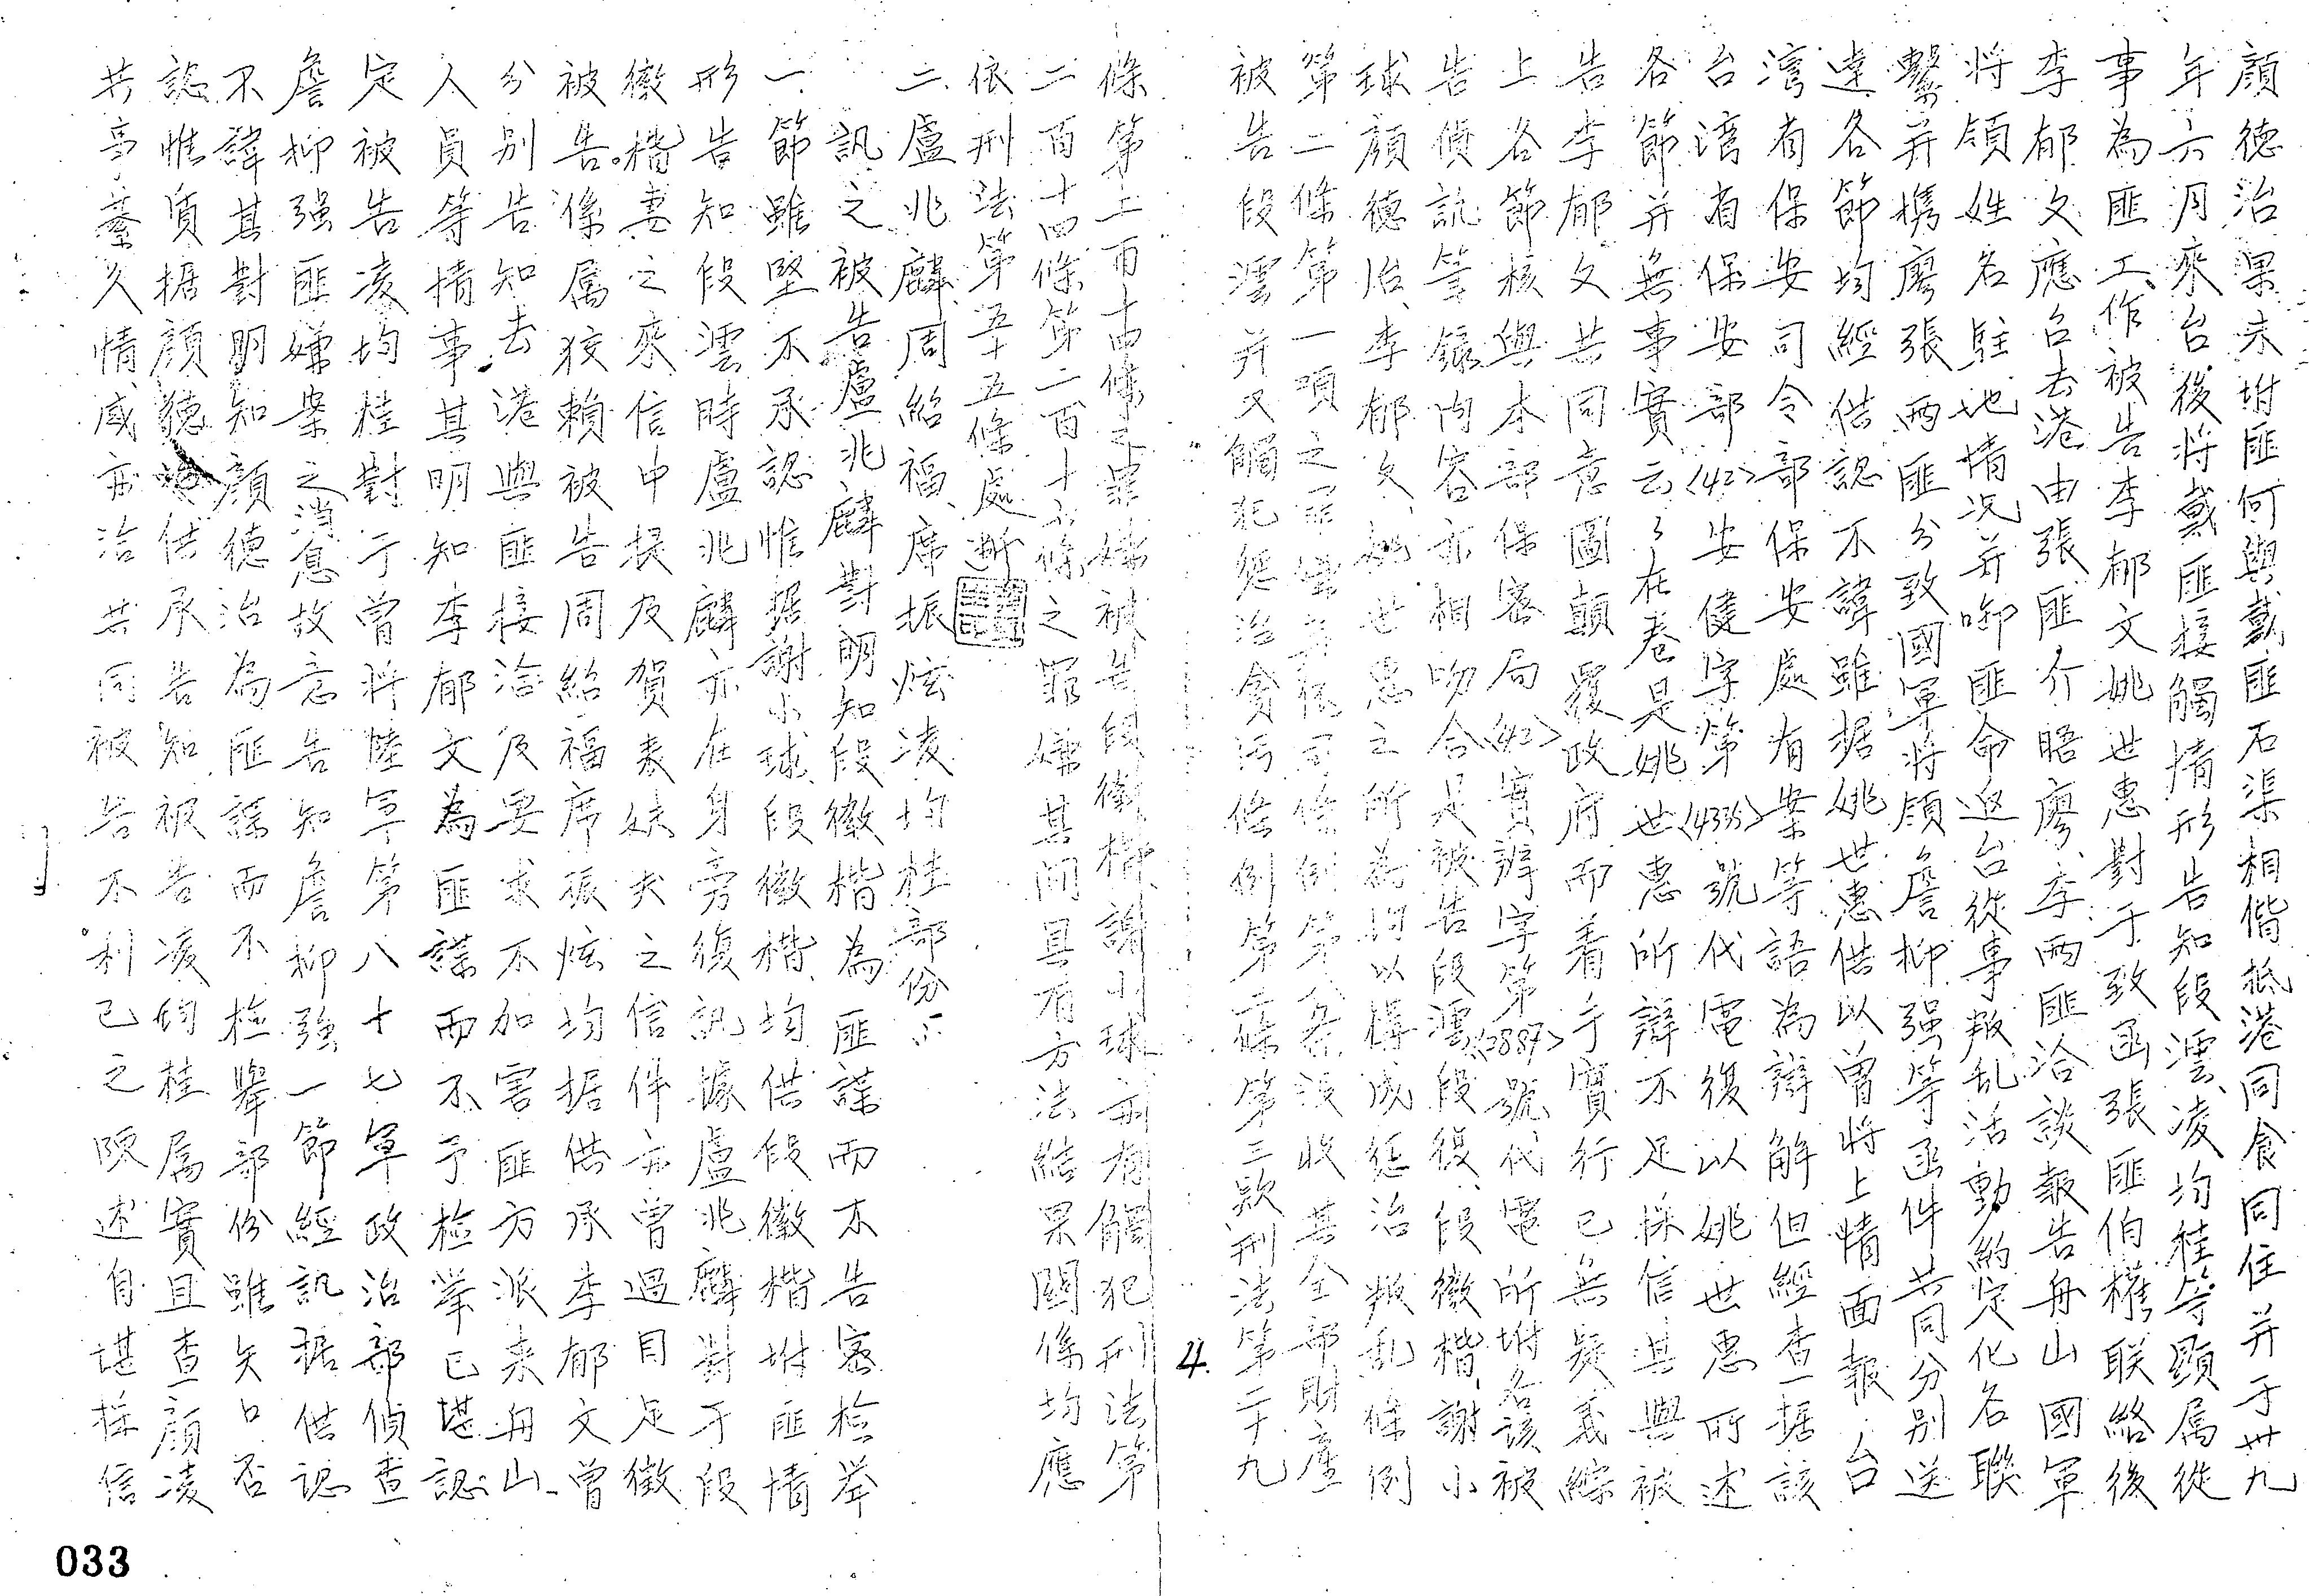 顏德治果未坿匪何與戴匪石渠相偕抵港同食同住并于卅九
年六月來台後将戴匪接觸情形告知段澐、凌均桂等顯属從
事為匪工作被告李郁文姚世惠對于致函張匪伯權联絡後
李郁文應召去港由張匪介晤廖、李兩匪洽談報告舟山國軍
将領姓名駐地情況并啣匪命返台從事叛乱活動約定化名聯
繫并携廖張兩匪分致國軍将領詹抑强等函件共同分别送
達各節均經供認不諱雖据姚世惠供以曾将上情面報台
灣省保安司令部保安處有案等語為辯解但經查据該
台灣省保安部〈42〉安健字第〈4335〉號代電復以姚世惠所述
各節并無事實云々在卷是姚世惠所辯不足採信其與被
告李郁文共同意圖顛覆政府而着于實行已無疑義綜
上各節核與本部保密局〈42〉實辦字第〈2887〉號代電所坿各該被
告偵訊筆錄內容亦相吻合是被告段澐段復、段徵楷、謝小
球顏德治、李郁文、姚世惠之所為均以構成惩治叛乱條例
第二條第一項之罪嫌并依同條例第八條没收其全部財產
被告段澐并又觸犯惩治貪污條例第二條第三款刑法第二十九
4.
條第二百十四條之罪嫌被告段徵楷、謝小球亦有觸犯刑法第
二百十四條第二百十六條之罪嫌其间具有方法結果關係均應
依刑法第五十五條處断
二、盧兆麟、周紹福、席振炫、凌均桂部份：
訊之被告盧兆麟對明知段徵楷為匪諜而不告密檢举
一節雖堅不承認惟据謝小球、段徵楷均供段徵楷坿匪情
形告知段澐時盧兆麟亦在身旁復訊據盧兆麟對于段
徵楷妻之來信中提及賀表妹夫之信件亦曾過目足徵
被告係属狡賴被告周紹福席振炫均据供承李郁文曾
分别告知去港與匪接洽及要求不加害匪方派来舟山
人員等情事其明知李郁文為匪諜而不予检举已堪認
定被告凌均桂對于曾将陸军第八十七軍政治部偵查
詹抑强匪嫌案之消息故意告知詹抑强一節經訊据供認
不諱其對明知顏德治為匪諜而不檢舉部份雖矢口否
認惟质据顏德治供承告知被告凌均桂属實且查顏凌
共事綦久情感亦洽共同被告不利己之陳述自堪採信
033